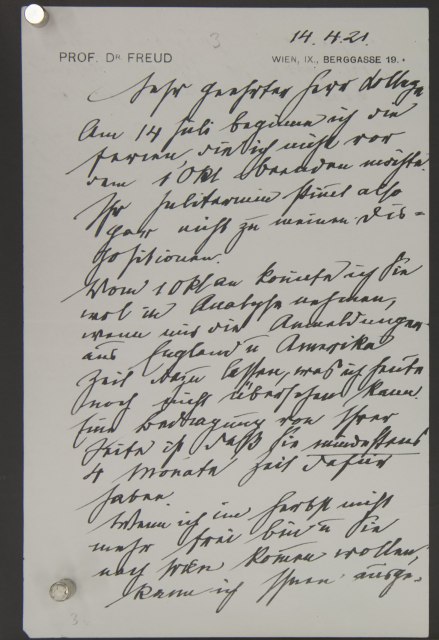 3
14.4.21.
PROF. DR. FREUD
WIEN, IX., BERGGASSE 19.
Sehr geehrter Herr Kollege
Am 14 Juli beginne ich die
Ferien, die ich nicht vor
dem 1 Okt beenden möchte.
Ihr Julitermin stimmt also
gar nicht zu meinen Dis-
positionen.
Vom 1 Okt an könnte ich Sie
wol in Analyse nehmen,
wenn mir die Anmeldungen
aus England u Amerika
Zeit dazu lassen, was ich heute
noch nicht übersehen kann.
Eine Bedingung von Ihrer
Seite ist daß Sie mindestens
4 Monate Zeit dafür
haben.
Wenn ich im Herbst nicht
mehr frei bin u Sie
nach Wien kommen wollen,
kann ich Ihnen ausge-
3